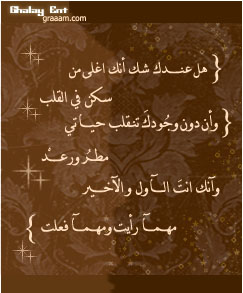 Ghalay Ent
graaam.com
{ هل عندك شك أنك اغلى من
سكن في القلب
{ وأن دون وجودكَ تنقلب حياتي
مطرُ ورعدْ
وآنك انتَ الـآول والآخير
مهمـآ رأيت ومهمـآ فعلت }